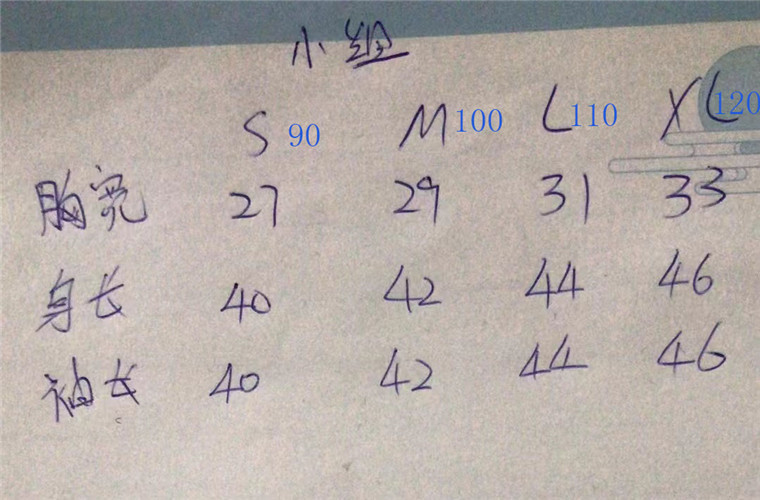 小组
S 90 M 100 L 110 XL 120
胸宽 27 29 31 33
身长 40 42 44 46
袖长 40 42 44 46